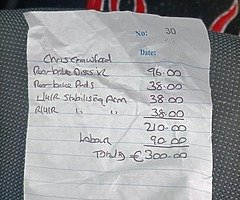 No: 30
Date:
Chris Crawford
Rear brake Discs x2 96.00
Rear brake Pads 38.00
L/H/R Stabilising Arm 38.00
R/H/R " " 38.00
210.00
Labour 90.00
Total €300.00